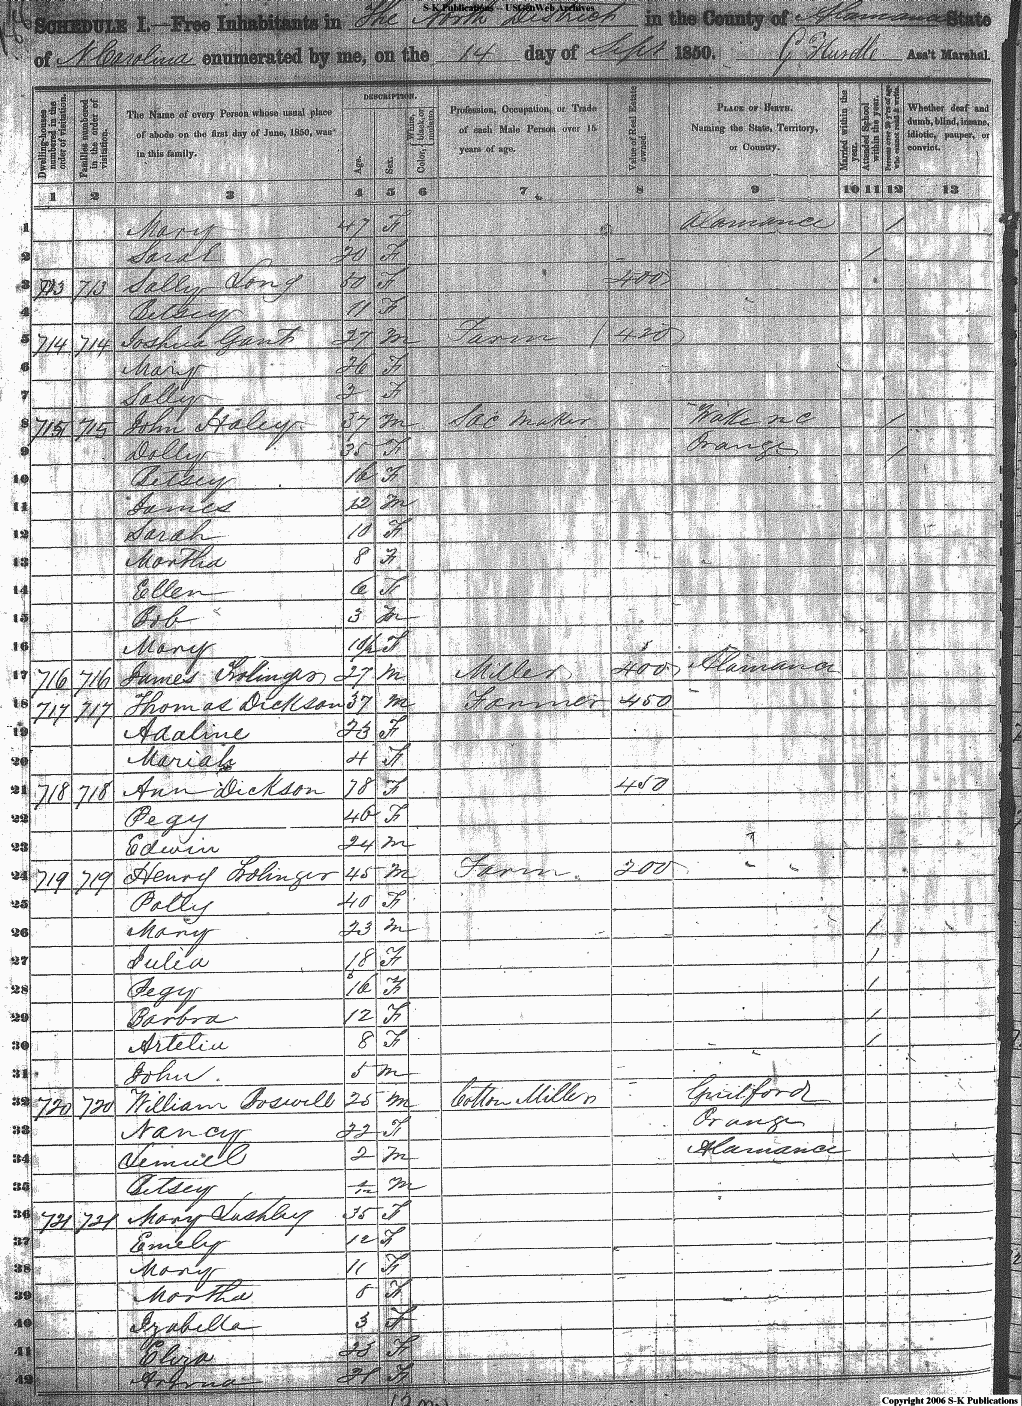 S-K Publications -- USGenWeb Archives
SCHEDULE I.—Free Inhabitants in The North District in the County of Alamance State
of N Carolina enumerated by me, on the 14 day of Sept 1850. G Hurdle Ass't Marshal.
Dwelling-houses numbered in the order of visitation.
Families numbered in the order of visitation.
The Name of every Person whose usual place of abode on the first day of June, 1850, was in this family.
DESCRIPTION.
Age.
Sex.
Color, White, black, or mulatto.
Profession, Occupation, or Trade of each Male Person over 15 years of age.
Value of Real Estate owned.
PLACE OF BIRTH. Naming the State, Territory, or Country.
Married within the year.
Attended School within the year.
Persons over 20 y'rs of age who cannot read & write.
Whether deaf and dumb, blind, insane, idiotic, pauper, or convict.
1 2 3 4 5 6 7 8 9 10 11 12 13
1 Mary 47 F Alamance /
2 Sarah 20 F /
3 713 713 Sally Long 50 F 400
4 Betsey 11 F
5 714 714 Joshua Gant 27 m Farm 420
6 Mary 26 F
7 Sally 2 F
8 715 715 John Haley 37 m Sac maker Wake n c /
9 Dolly 35 F Orange /
10 Betsey 16 F
11 James 12 m
12 Sarah 10 F
13 Martha 8 F
14 Ellen 6 F
15 Bob 3 m
16 Mary F
17 716 716 James 27 m Miller 400 Alamance
18 717 717 Thomas Dickson 37 m Farmer 450
19 Adaline 23 F
20 Mariah 4 F
21 718 718 Ann Dickson 78 F 450
22 Pegy 46 F
23 Edwin 24 m
24 719 719 Henry 45 m Farm 200
25 Polly 40 F
26 Mary 23 m /
27 Julia 18 F /
28 Pegy 16 F /
29 Barbra 12 F /
30 8 F /
31 John 5 m
32 720 720 William Boswell 25 m Cotton Miller Guilford
33 Nancy 22 F Orange
34 Lemuel 2 m Alamance
35 Betsey m
36 721 721 Mary Lashley 35 F
37 Emely 12 F
38 Mary 11 F
39 Martha 8 F
40 Izabella 3 F
41 Eliza 23 F
42 21 F
Copyright 2006 S-K Publications